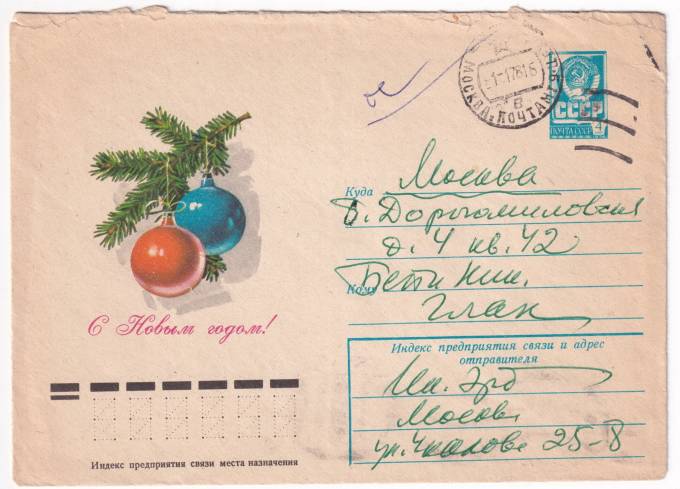 МОСКВА ПОЧТАМТ
СССР
ПОЧТА СССР
4
Куда Москва
Б. Дорогомиловская
д. 4 кв. 42
Кому Бети Ник.
Глан
С Новым годом!
Индекс предприятия связи и адрес
отправителя
Москва
ул. Чкалова 25-8
Индекс предприятия связи места назначения